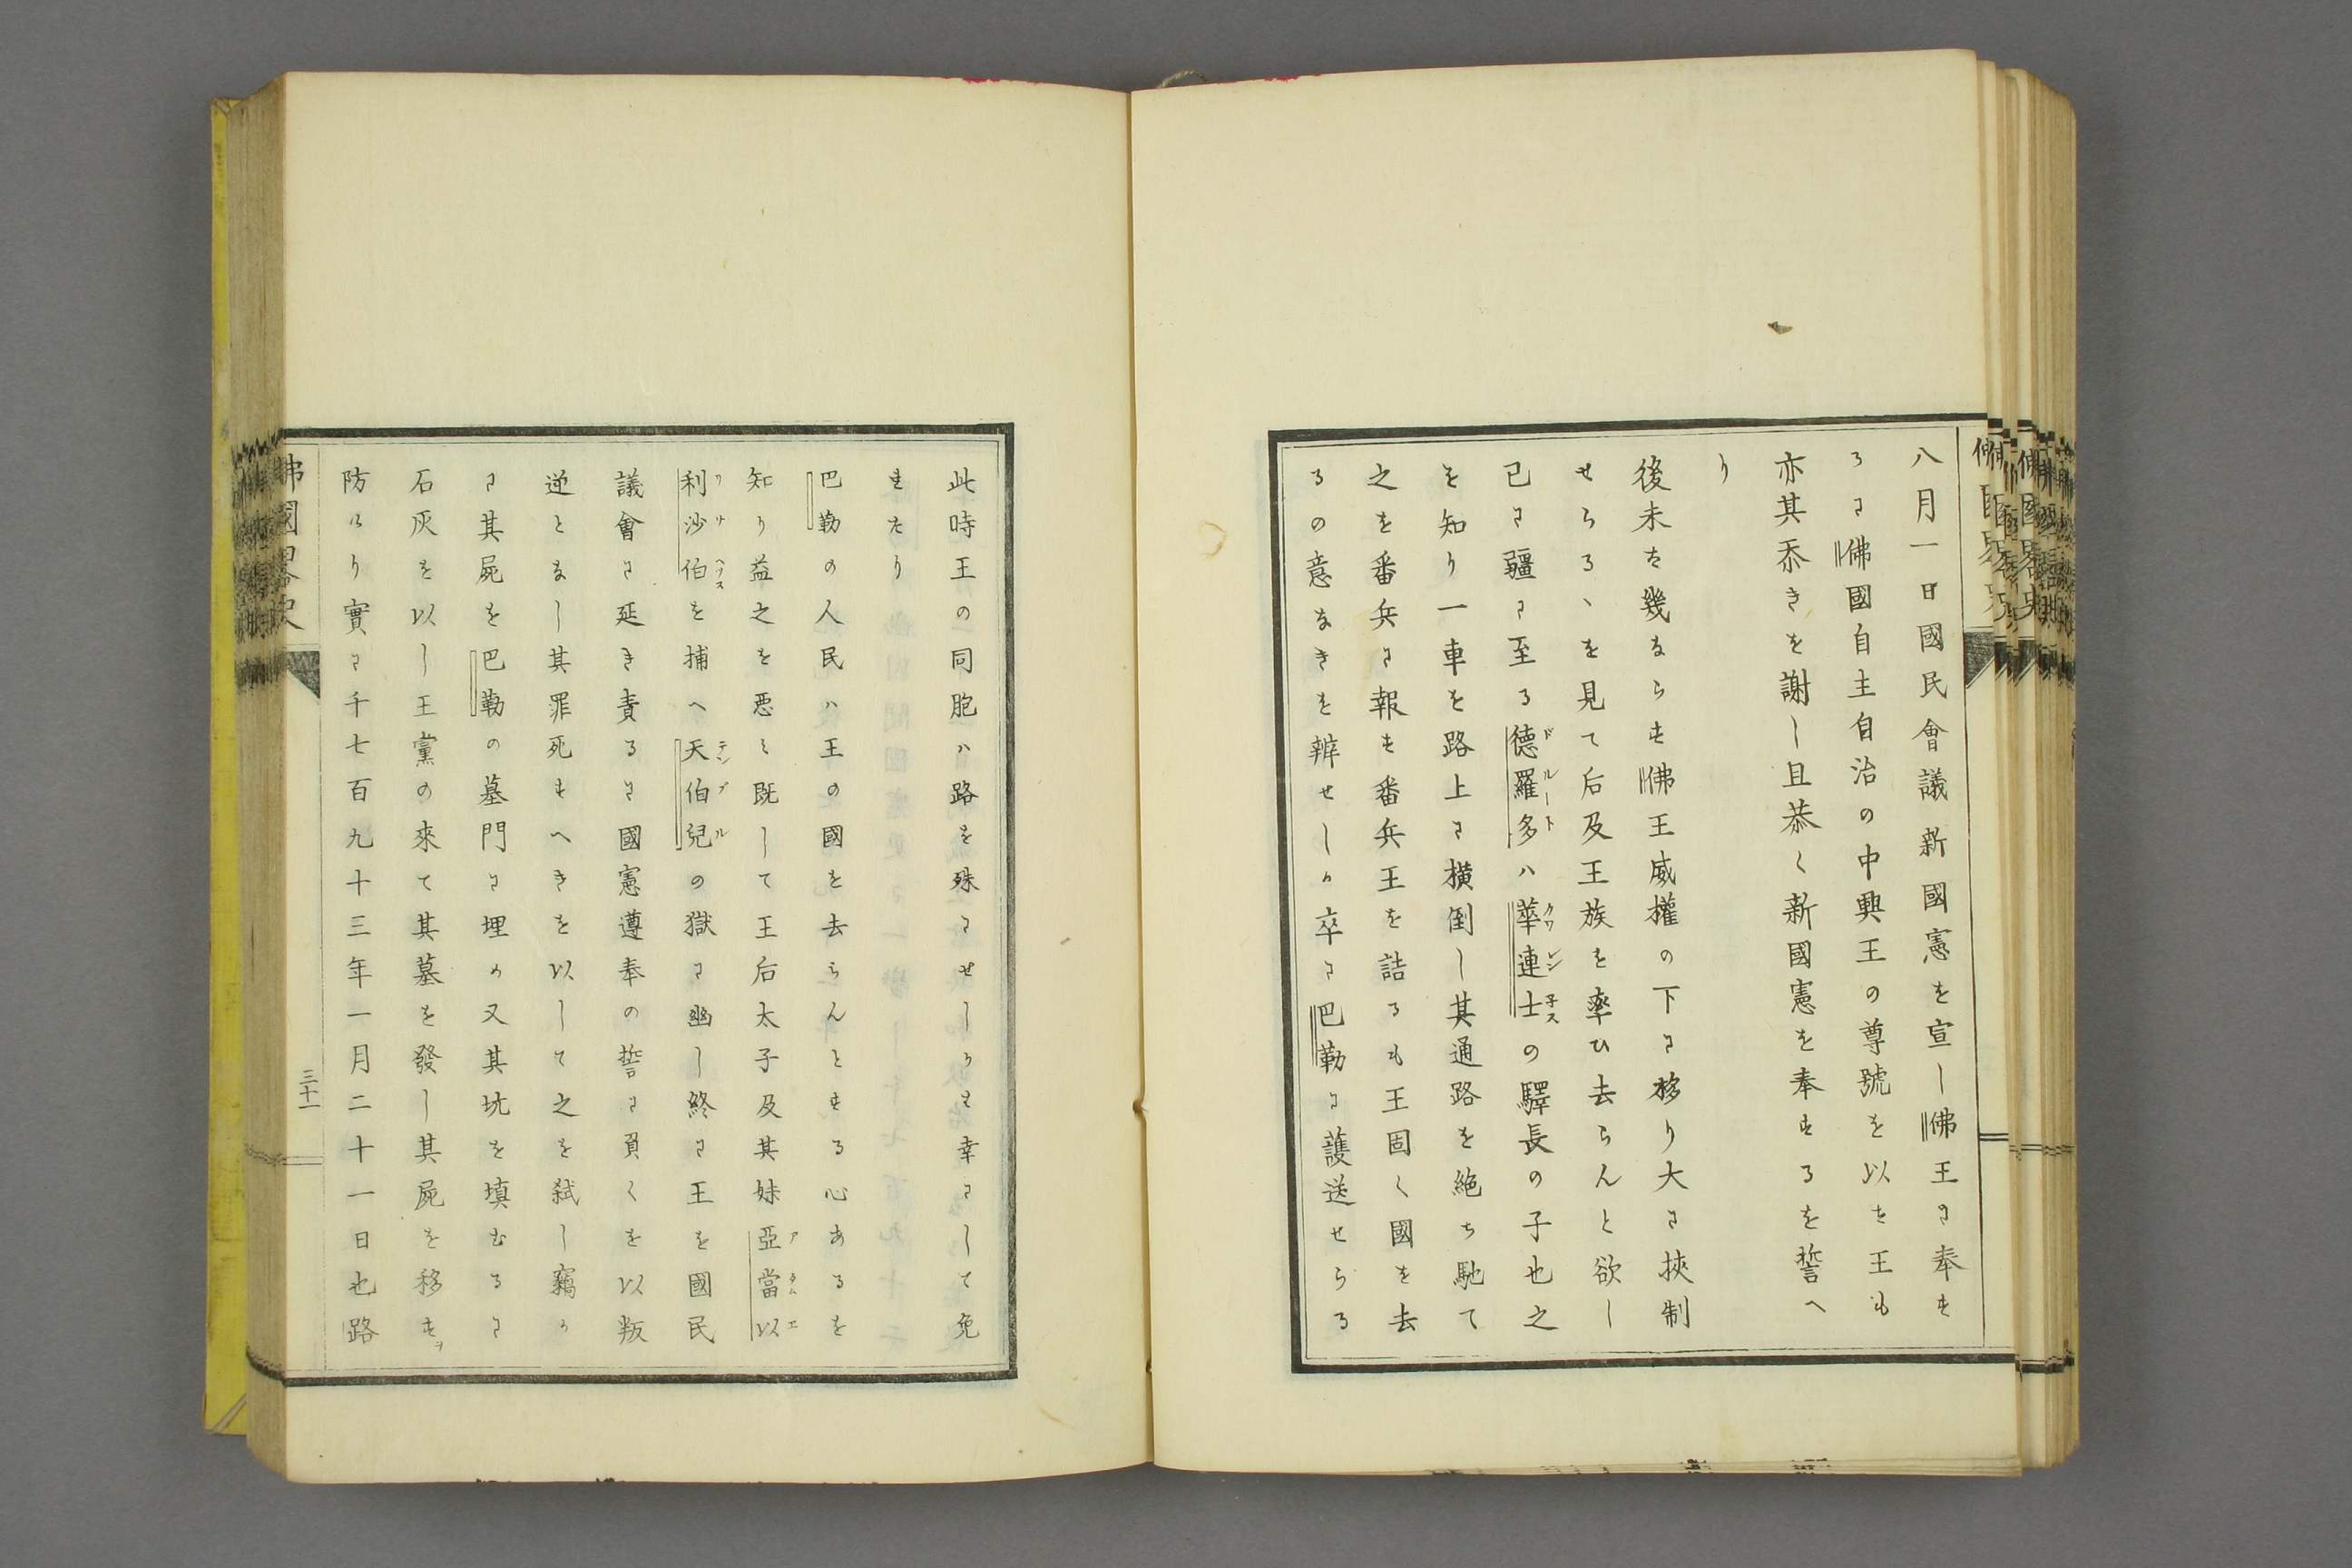 八月一日國民會議新國憲を宣し佛王に奉す
るに佛國自主自治の中興王の尊號を以た王も
亦其忝きを謝し且恭く新國憲を奉するを誓へ
り
後未た幾ならす佛王威權の下に移り大に挾制
せらるゝを見て后及王族を率ひ去らんと欲し
已に疆に至る德羅多ハ華連士の驛長の子也之
ドルート
クワレン子ス
を知り一車を路上に橫倒し其通路を絶ち馳て
之を番兵に報す番兵王を詰るも王固く國を去
るの意なきを辨せしか卒に巴勒に護送せらる
此時王の同胞ハ路を殊にせしかは幸にして免
れたり
巴勒の人民ハ王の國を去らんとする心あるを
知り益之を悪み既して王后太子及其妹亞當以
アタムエ
利沙伯を捕へ天伯兒の獄に幽し終に王を國民
リサヘツス
テンブル
議會に延き責るに國憲遵奉の誓に負くを以叛
逆となし其罪死すへきを以して之を弑し竊か
に其屍を巴勒の墓門に埋め又其坑を塡むるに
石灰を以し王黨の來て其墓を發し其屍を移すヲ
防けり實に千七百九十三年一月二十一日也路
佛國畧史
三十一